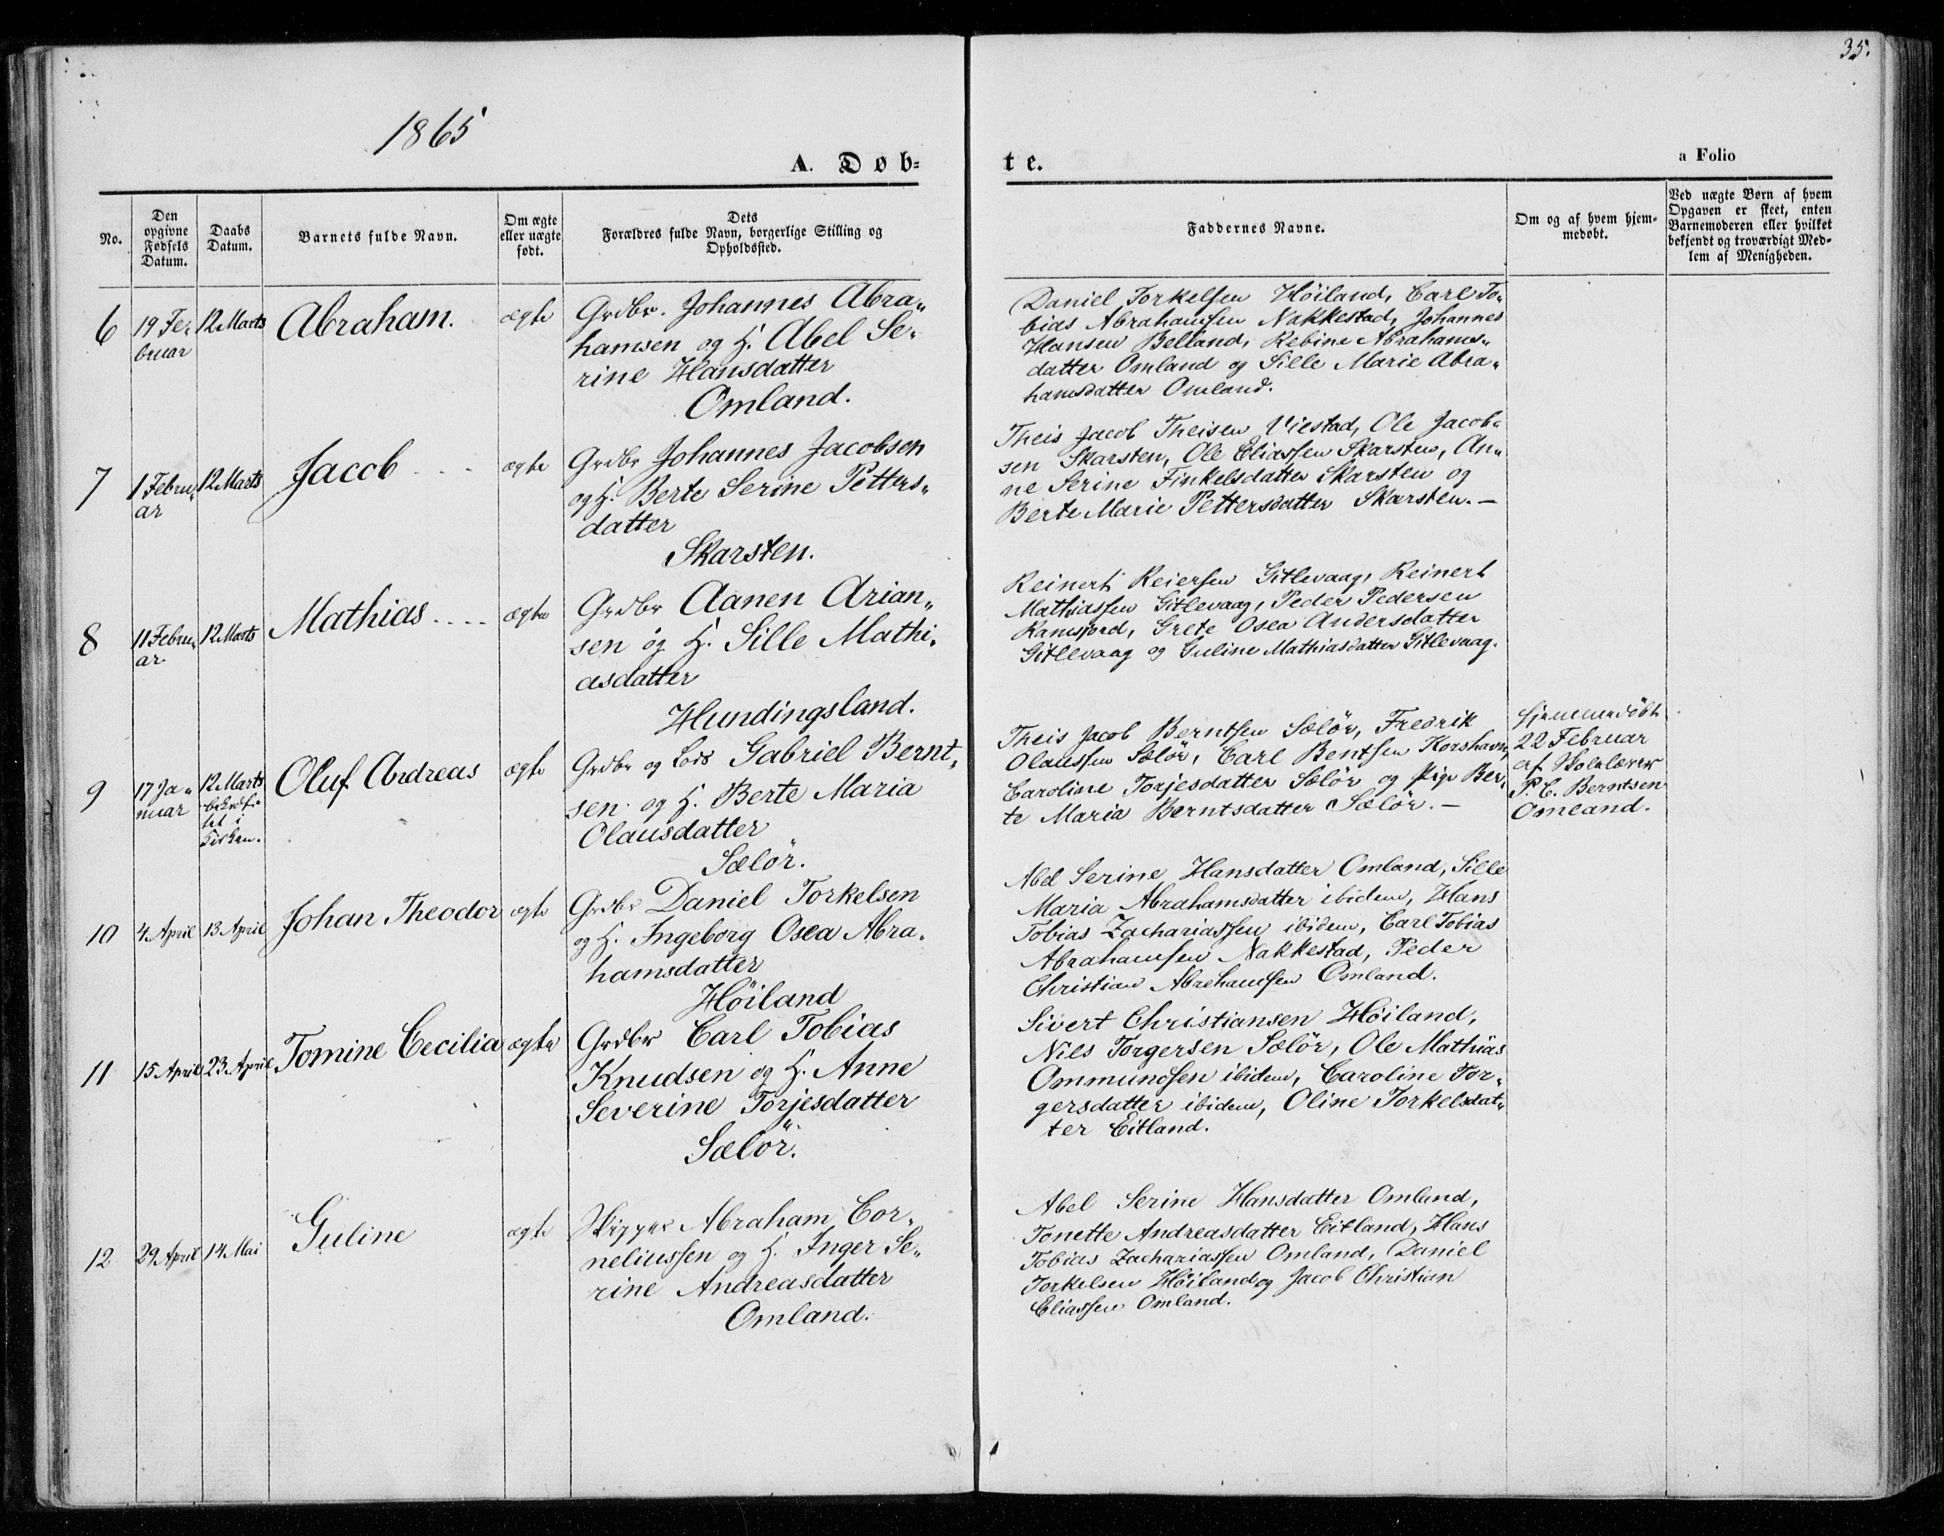 35.
1865
A. Døb-
te.
a Folio
No.
Den
opgivne
Fødsels
Datum.
Daabs
Datum.
Barnets fulde Navn.
Om ægte
eller uægte
født.
Dets
Forældres fulde Navn, borgerlige Stilling og
Opholdssted.
Faddernes Navne.
Om og af hvem hjem-
medøbt.
Ved uægte Børn af hvem
Opgaven er skeet, enten
Barnemoderen eller hvilket
bekjendt og troværdigt Med-
lem af Menigheden.
6
19 Fe-
bruar
12 Marts
Abraham.
ægte
Grdbr. Johannes Abra-
hamsen og H. Abel Se-
rine Hansdatter
Omland.
Daniel Torkelsen Høiland, Carl To-
bias Abrahamsen Nakkestad, Johannes
Hansen Belland, Rebine Abrahams-
datter Omland og Sille Marie Abra-
hamsdatter Omland.
7
1 Febru-
ar
12 Marts
Jacob
ægte
Grdbr Johannes Jacobsen
og H. Berte Serine Petters-
datter
Skarsten.
Theis Jacob Theisen Viestad, Ole Jacob-
sen Skarsten, Ole Eliassen Skarsten, An-
ne Serine Finkelsdatter Skarsten og
Berte Marie Pettersdatter Skarsten. —
8
11 Febru-
ar
12 Marts
Mathias
ægte
Grdbr Aanen Arian-
sen og H. Sille Mathi-
asdatter
Hundingsland.
Reinert Reiersen Gitlevaag, Reinert
Mathiassen Gitlevaag, Peder Pedersen
Ramsford, Grete Osea Andersdatter
Gitlevaag og Guline Mathiasdatter Gitlevaag.
9
17 Ja-
nuar
12 Marts
bekræf-
tet i
Kirken.
Oluf Andreas
ægte
Grdbr og Lods Gabriel Bernt-
sen og H. Berte Maria
Olausdatter
Sælör.
Theis Jacob Berntsen Sælör, Fredrik
Olaussen Sælör, Carl Bentsen Korshavn,
Caroline Torjesdatter Sælör og Pige Ber-
te Maria Berntsdatter Sælör. —
Hjemmedöbt
22 Februar
af Skolelærer
P. C. Berntsen
Omland.
10
4 April
13 April
Johan Theodor
ægte
Grdbr Daniel Torkelsen
og H. Ingeborg Osea Abra-
hamsdatter
Höiland
Abel Serine Hansdatter Omland, Sille
Maria Abrahamsdatter ibidem, Hans
Tobias Zachariassen ibidem, Carl Tobias
Abrahamsen Nakkestad, Peder
Christian Abrahamsen Omland.
11
15 April
23 April
Tomine Cecilia
ægte
Grdbr Carl Tobias
Knudsen og H. Anne
Severine Torjesdatter
Sælör.
Sivert Christiansen Höiland,
Nils Torgersen Sælör, Ole Mathias
Ommundsen ibidem, Caroline Tor-
gersdatter ibidem, Oline Torkelsdat-
ter Eitland.
12
29 April
14 Mai
Guline
ægte
Skipper Abraham Cor-
neliussen og H. Inger Se-
rine Andreasdatter
Omland.
Abel Serine Hansdatter Omland,
Tonette Andreasdatter Eitland, Hans
Tobias Zachariassen Omland, Daniel
Torkelsen Höiland og Jacob Christian
Eliassen Omland.